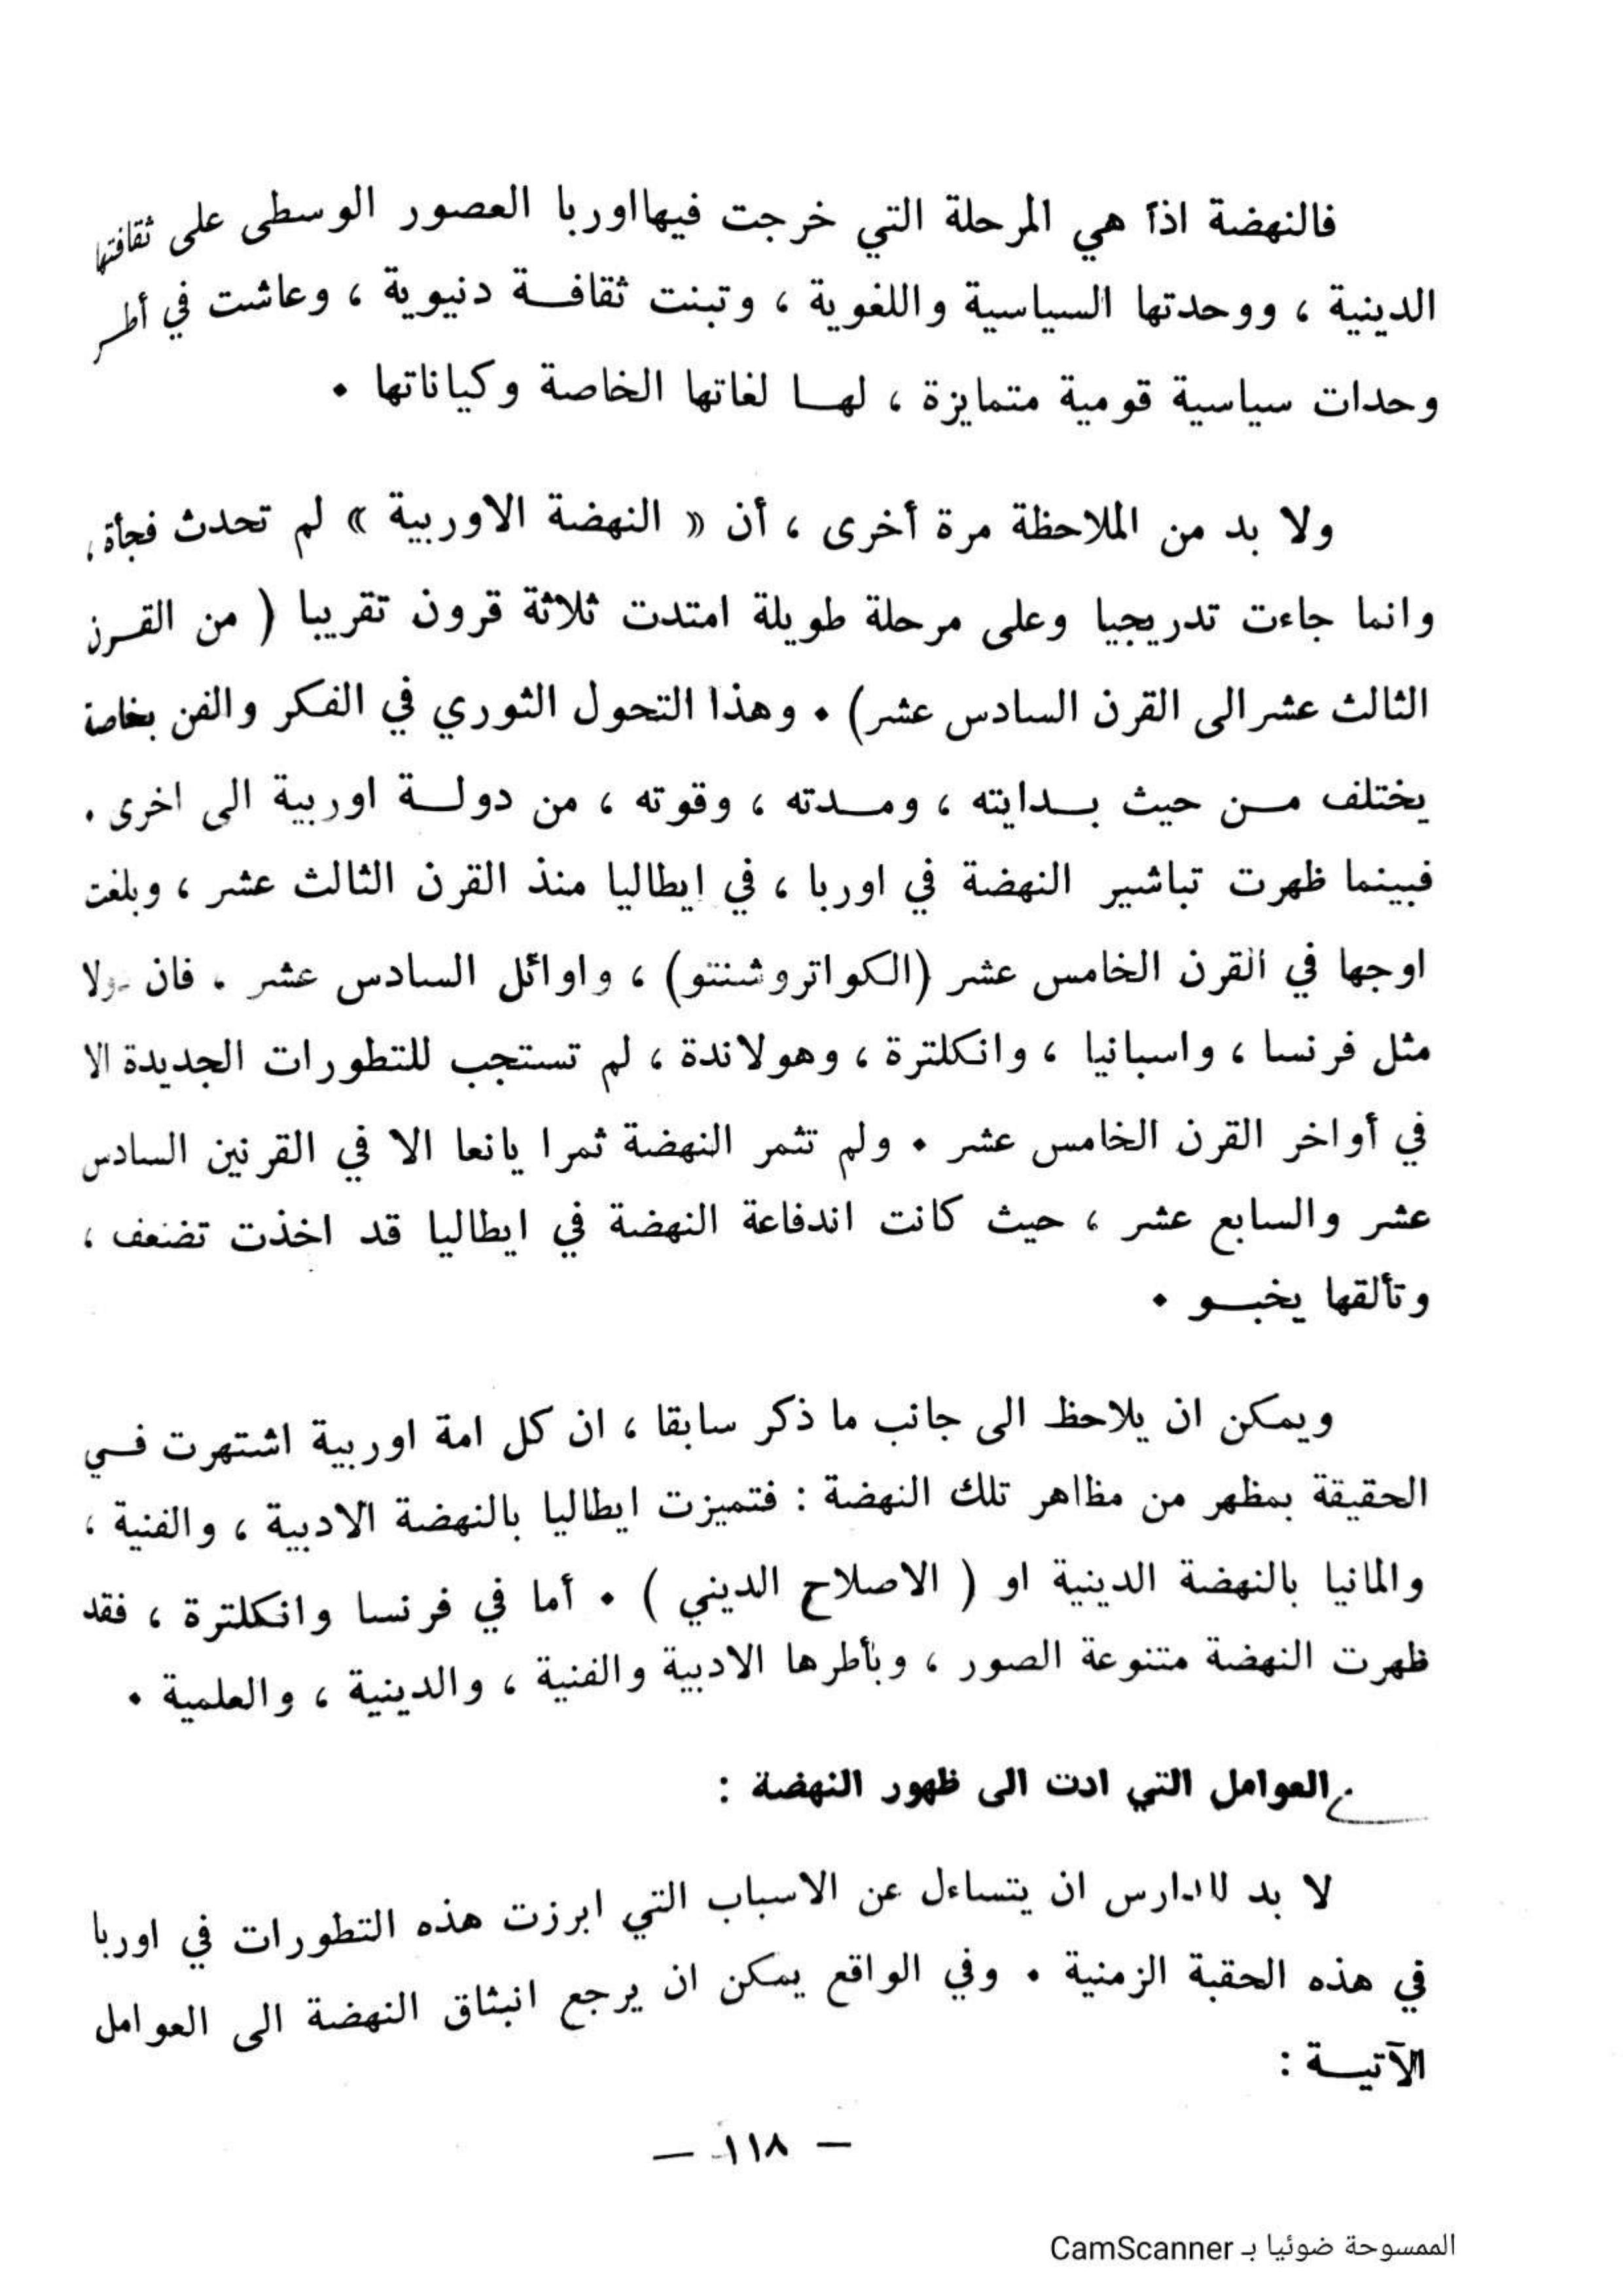 فالنهضة اذاً هي المرحلة التي خرجت فيهااوربا العصور الوسطى على ثقافتها
الدينية ، ووحدتها السياسية واللغوية ، وتبنت ثقافة دنيوية ، وعاشت في أطر
وحدات سياسية قومية متمايزة ، لها لغاتها الخاصة وكياناتها .
ولا بد من الملاحظة مرة أخرى ، أن « النهضة الاوربية » لم تحدث فجأة ،
وانما جاءت تدريجيا وعلى مرحلة طويلة امتدت ثلاثة قرون تقريبا ( من القرن
الثالث عشر الى القرن السادس عشر) . وهذا التحول الثوري في الفكر والفن بخاصة
يختلف من حيث بدايته ، ومدته ، وقوته ، من دولة اوربية الى اخرى .
فبينما ظهرت تباشير النهضة في اوربا ، في إيطاليا منذ القرن الثالث عشر ، وبلغت
اوجها في القرن الخامس عشر (الكواتروشنتو) ، واوائل السادس عشر . فان
مثل فرنسا ، واسبانيا ، وانكلترة ، وهولاندة ، لم تستجب للتطورات الجديدة الا
في أواخر القرن الخامس عشر . ولم تثمر النهضة ثمرا يانعا الا في القرنين السادس
عشر والسابع عشر ، حيث كانت اندفاعة النهضة في ايطاليا قد اخذت تضعف ،
وتألقها يخبو .
ويمكن ان يلاحظ الى جانب ما ذكر سابقا ، ان كل امة اوربية اشتهرت في
الحقيقة بمظهر من مظاهر تلك النهضة : فتميزت ايطاليا بالنهضة الادبية ، والفنية ،
والمانيا بالنهضة الدينية او ( الاصلاح الديني ) . أما في فرنسا وانكلترة ، فقد
ظهرت النهضة متنوعة الصور ، وبأطرها الادبية والفنية ، والدينية ، والعلمية .
العوامل التي ادت الى ظهور النهضة :
لا بد للدارس ان يتساءل عن الاسباب التي ابرزت هذه التطورات في اوربا
في هذه الحقبة الزمنية . وفي الواقع يمكن ان يرجع انبثاق النهضة الى العوامل
الآتية :
— ١١٨ —
الممسوحة ضوئيا بـ CamScanner